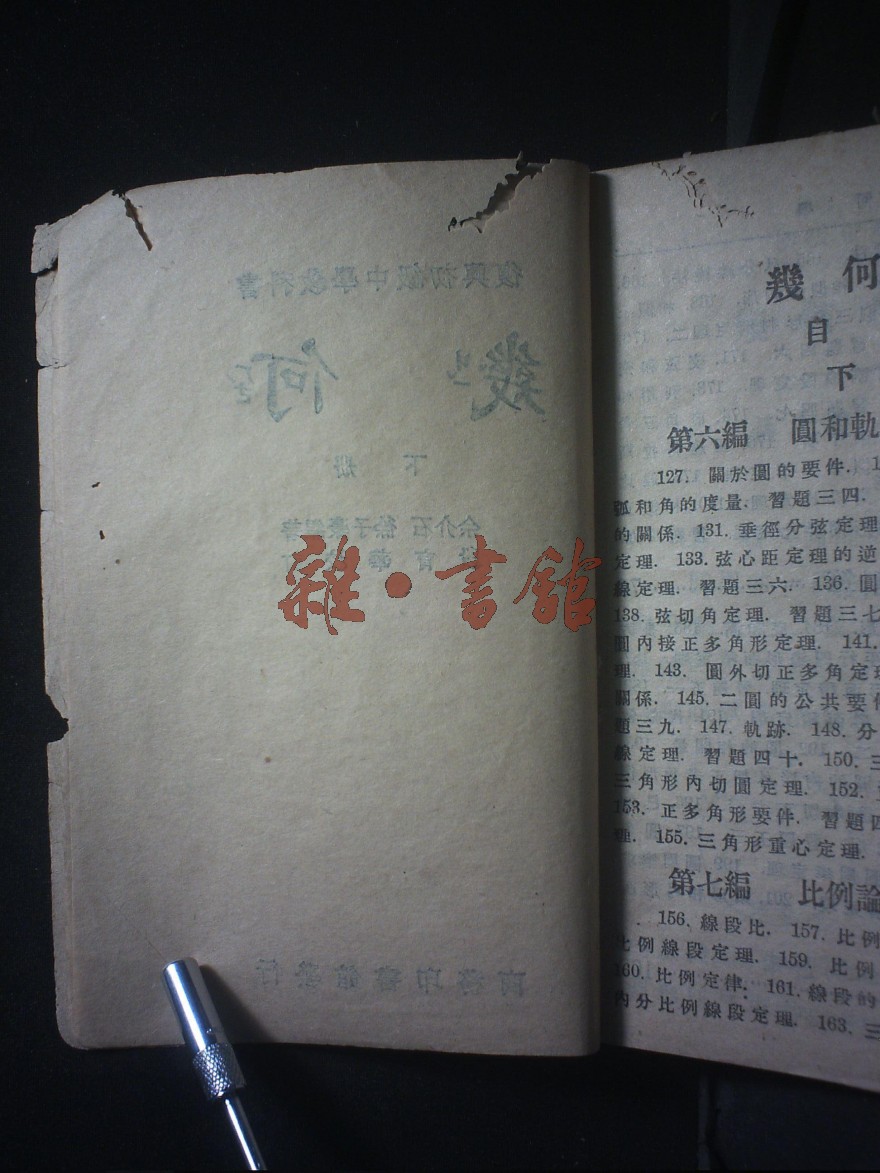 復興初級中學教科書
幾何
下册
余介石 徐子豪編著
雜·書館
商務印書館發行
幾何
自
下
第六編 圓和軌
127. 關於圓的要件.
弧和角的度量. 習題三四.
的關係. 131. 垂徑分弦定理
定理. 133. 弦心距定理的逆
線定理. 習題三六. 136. 圓
138. 弦切角定理. 習題三七
圓內接正多角形定理. 141.
理. 143. 圓外切正多角定理
關係. 145. 二圓的公共要件
題三九. 147. 軌跡. 148. 分
線定理. 習題四十. 150. 三
三角形內切圓定理. 152.
153. 正多角形要件. 習題四
理. 155. 三角形重心定理.
第七編 比例論
156. 線段比. 157. 比例
比例線段定理. 159. 比例
160. 比例定律. 161. 線段的
內分比例線段定理. 163. 三